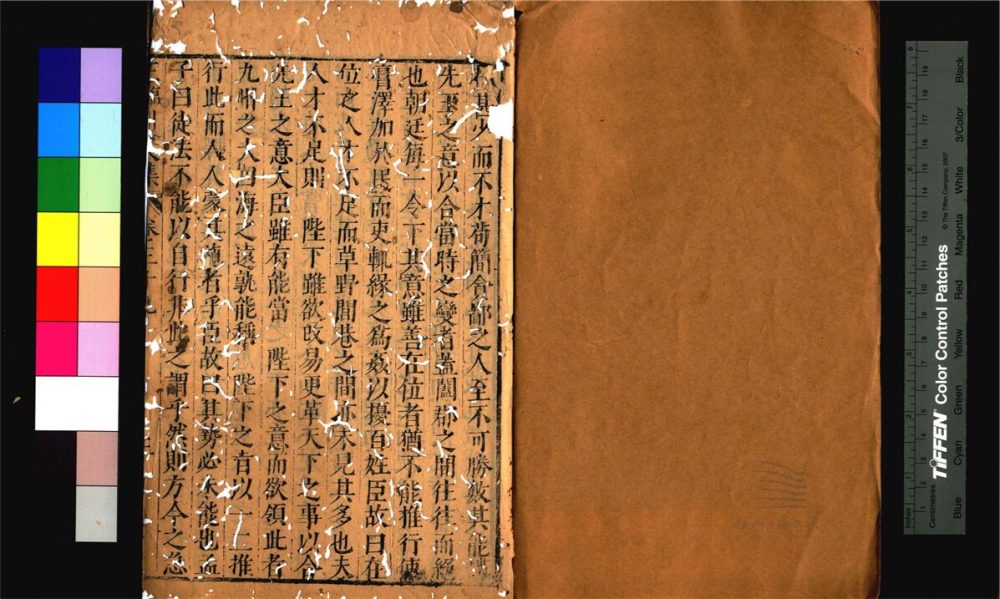 甚少而不才苟簡貪鄙之人至不可勝數其能
先王之意以合當時之變者蓋闔郡之間往往而絕
也朝廷每一令下其意雖善在位者猶不能推行使
膏澤加於民而吏輒緣之為姦以擾百姓臣故曰在
位之人才不足而草野閭巷之間亦未見其多也夫
人才不足則 陛下雖欲改易更革天下之事以合
先王之意大臣雖有能當 陛下之意而欲領此者
九州之大四海之遠孰能稱 陛下之指以一二推
行此而人人蒙其施者乎臣故曰其勢必未能也孟
子曰徒法不能以自行非此之謂乎然則方今之急
Inches
Centimetres
TIFFEN Color Control Patches
© The Tiffen Company, 2007
Blue Cyan Green Yellow Red Magenta White 3/Color Black